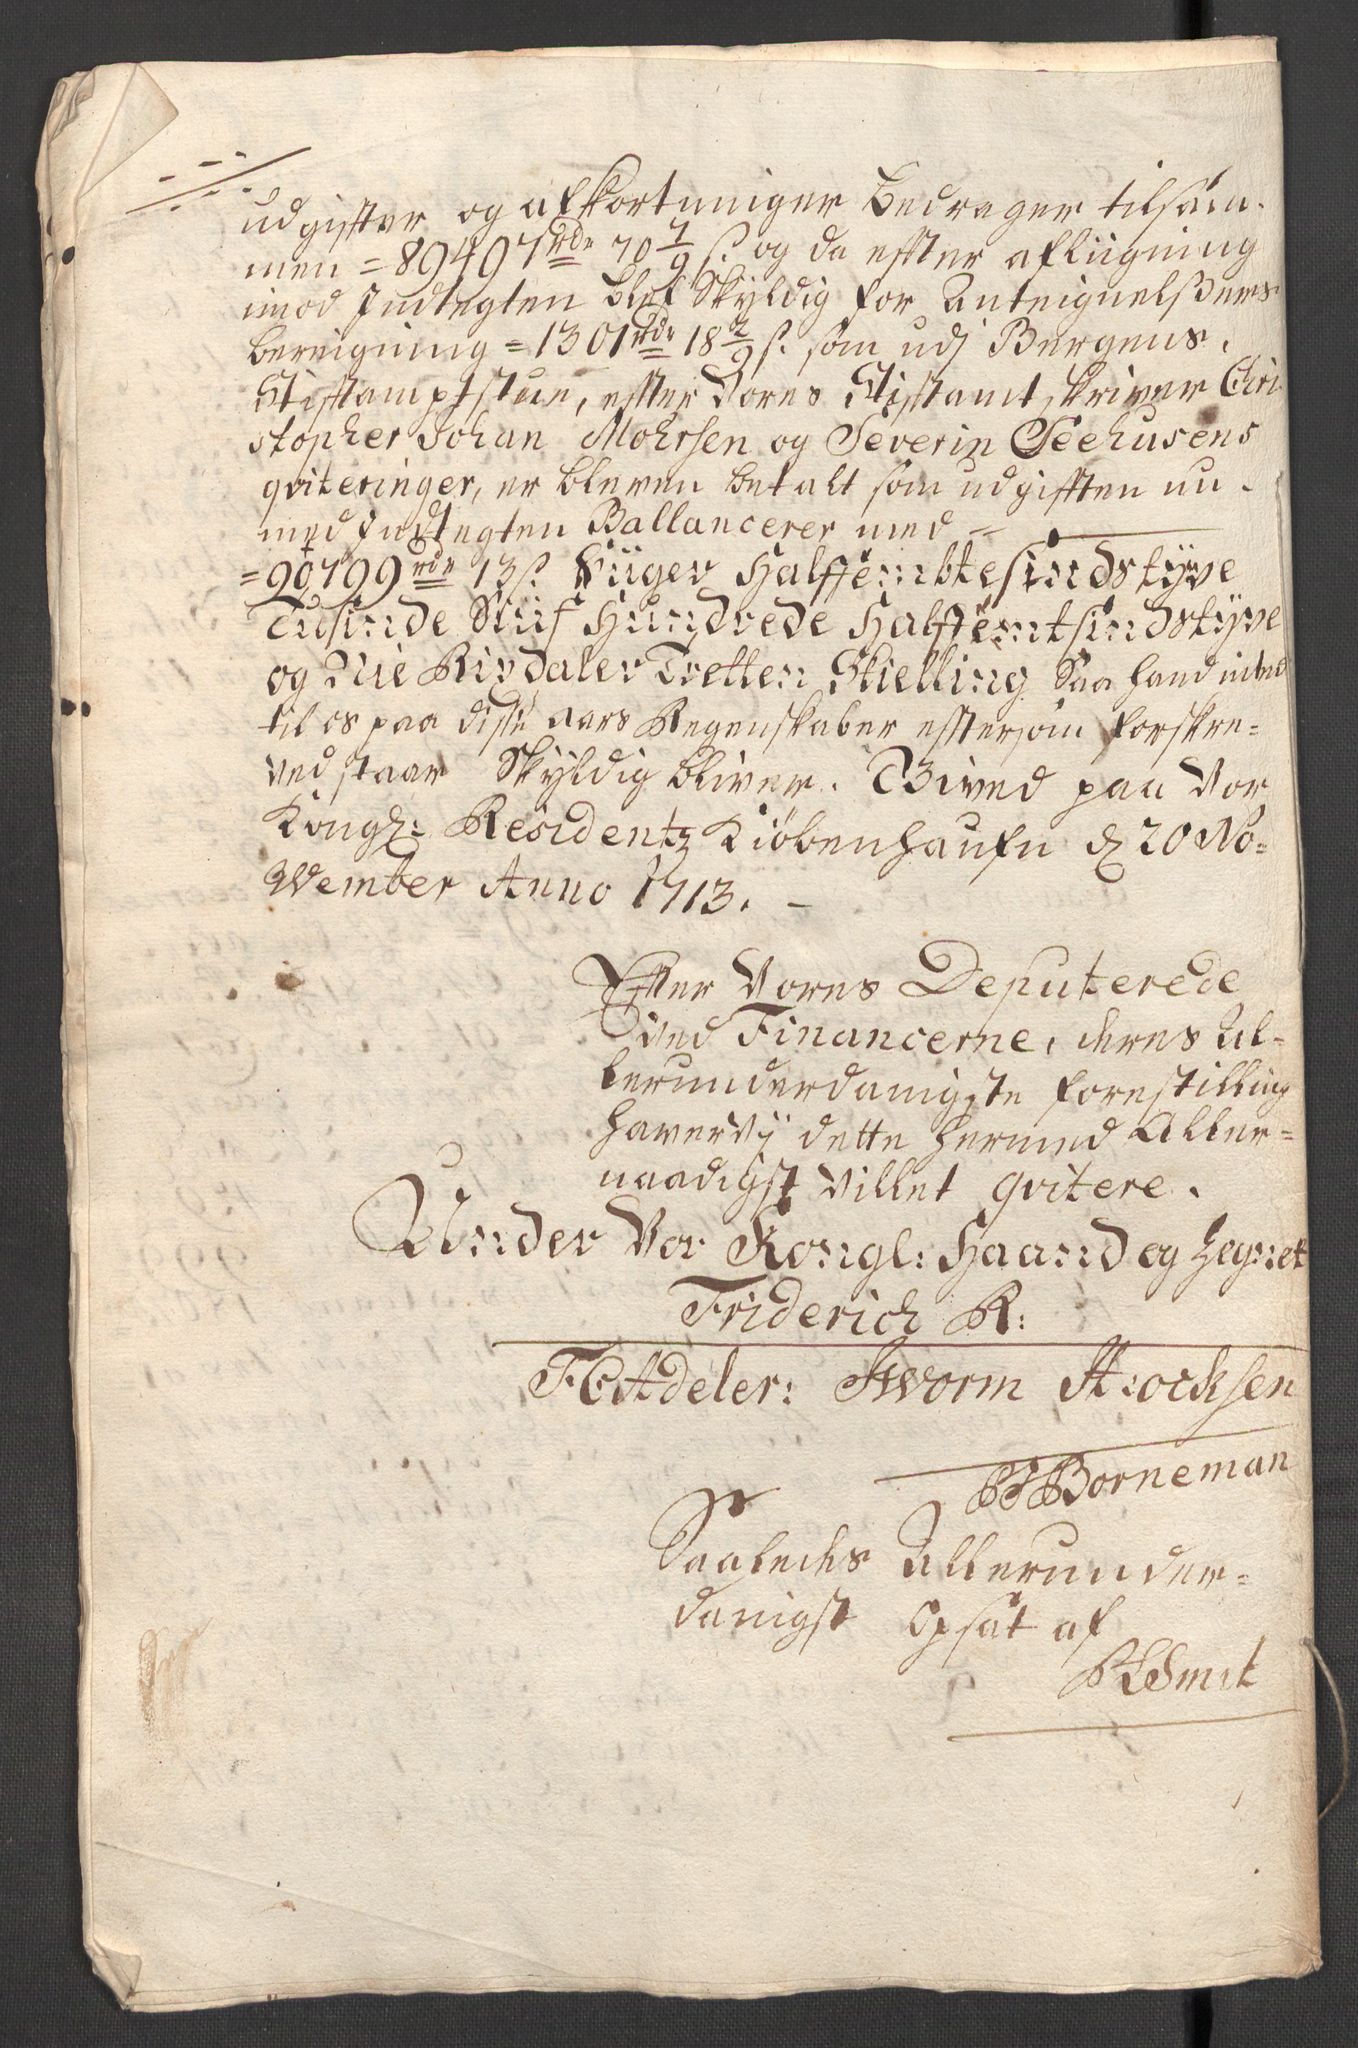 udgiffter og afkortninger bedrager tilsam-
men =89497 rdr 70 7/9 s. og da effter afliigning
imod Indtegten blef Skyldig for Anteignelßers
bereigning =1301 rdr 18 2/9 s. som udj Bergens
Stifftamptstue, effter Vores Stifftamtskriver Chri
stopher Johan Mohrsen og Severin Seehusens
qviteringer, er bleven betalt som udgifften nu
med Indtegten Ballancerer med =
=90799 rdr 13 s. Siiger Halffembtesindstÿve
Tusinde Siuf Hundrede Halffemtsindstÿve
og Nie Rixdaler Tretten Skielling Saa hand intet
til os paa disse aars Regenskaber efftersom forskre-
ved staar Skyldig bliver. Skrived paa Vor
Kongl: Residentz Kiøbenhaufn d. 20 No-
Wember Anno 1713. -
Efter Vores Deputerede
ved Financerne, deres Al-
lerunderdanigste forestilling
haver Vÿ dette hermed Aller-
naadigst Villet qvitere.
Under Vor Kongl: Haand og Zegnet
Friderich R:
F C Adeler: JWorm Stocksen
Borneman
Saaledes Allerunder-
danigst Opsat af
Smit